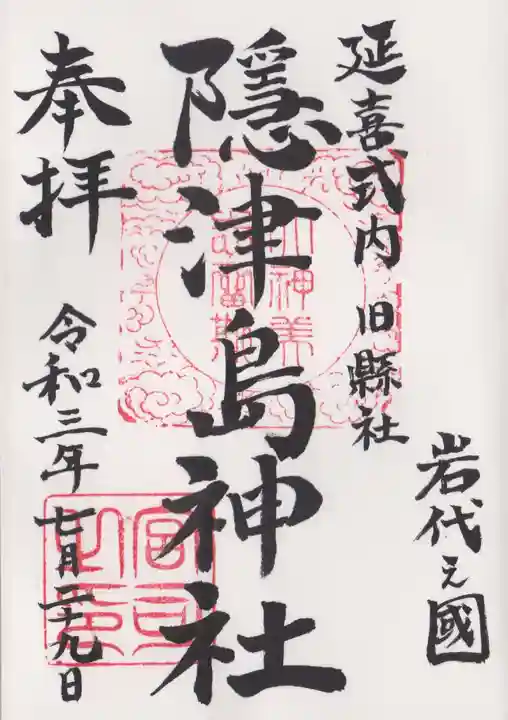 岩代之國
延喜式内 旧縣社
隠津島神社
奉拝
令和三年七月二十九日